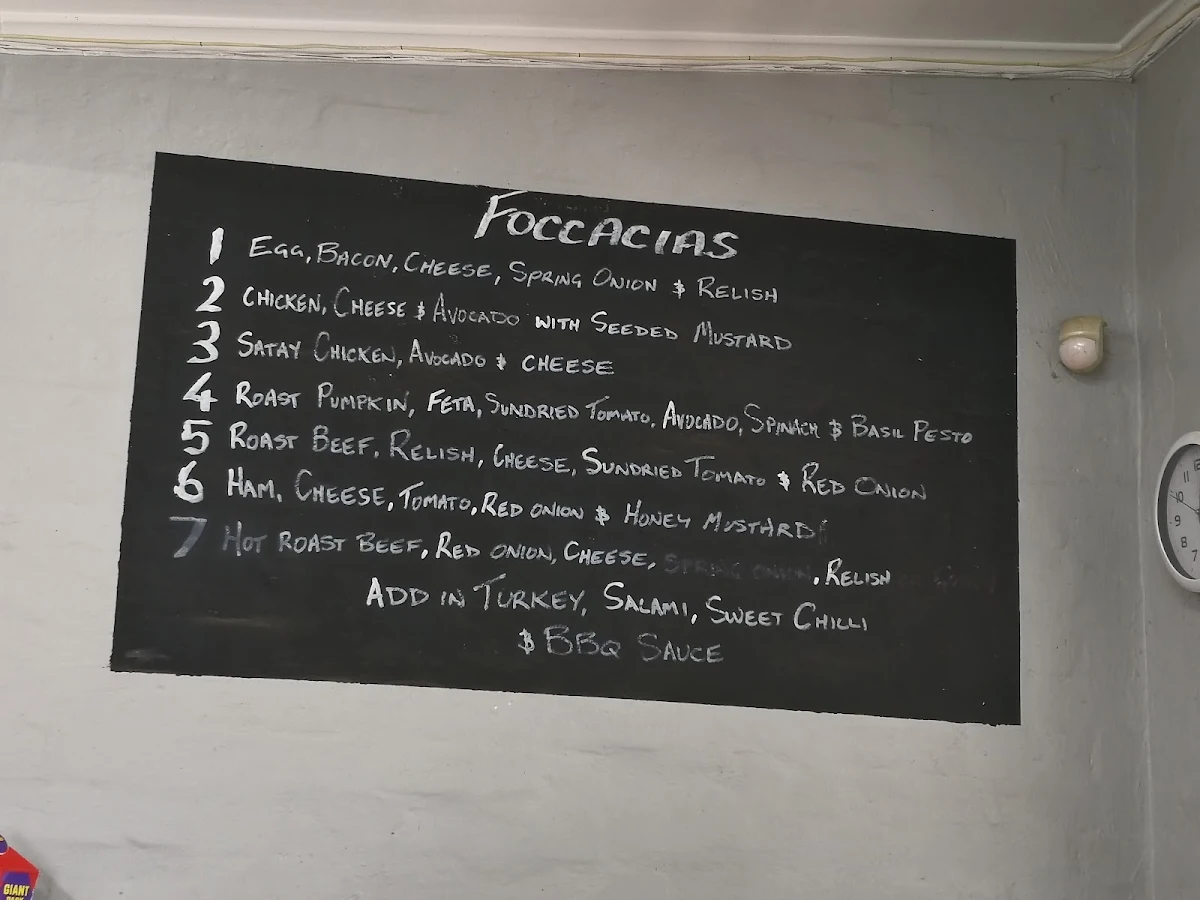 FOCCACIAS
1 EGG, BACON, CHEESE, SPRING ONION & RELISH
2 CHICKEN, CHEESE & AVOCADO WITH SEEDED MUSTARD
3 SATAY CHICKEN, AVOCADO & CHEESE
4 ROAST PUMPKIN, FETA, SUNDRIED TOMATO, AVOCADO, SPINACH & BASIL PESTO
5 ROAST BEEF, RELISH, CHEESE, SUNDRIED TOMATO & RED ONION
6 HAM, CHEESE, TOMATO, RED ONION & HONEY MUSTARD
7 HOT ROAST BEEF, RED ONION, CHEESE, SPRING ONION, RELISH
ADD IN TURKEY, SALAMI, SWEET CHILLI
& BBQ SAUCE
12
11
10
9
8
7
GIANT